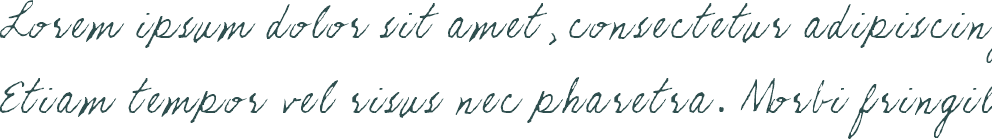 Lorem ipsum dolor sit amet, consectetur adipiscin
Etiam tempor vel risus nec pharetra. Morbi fringil